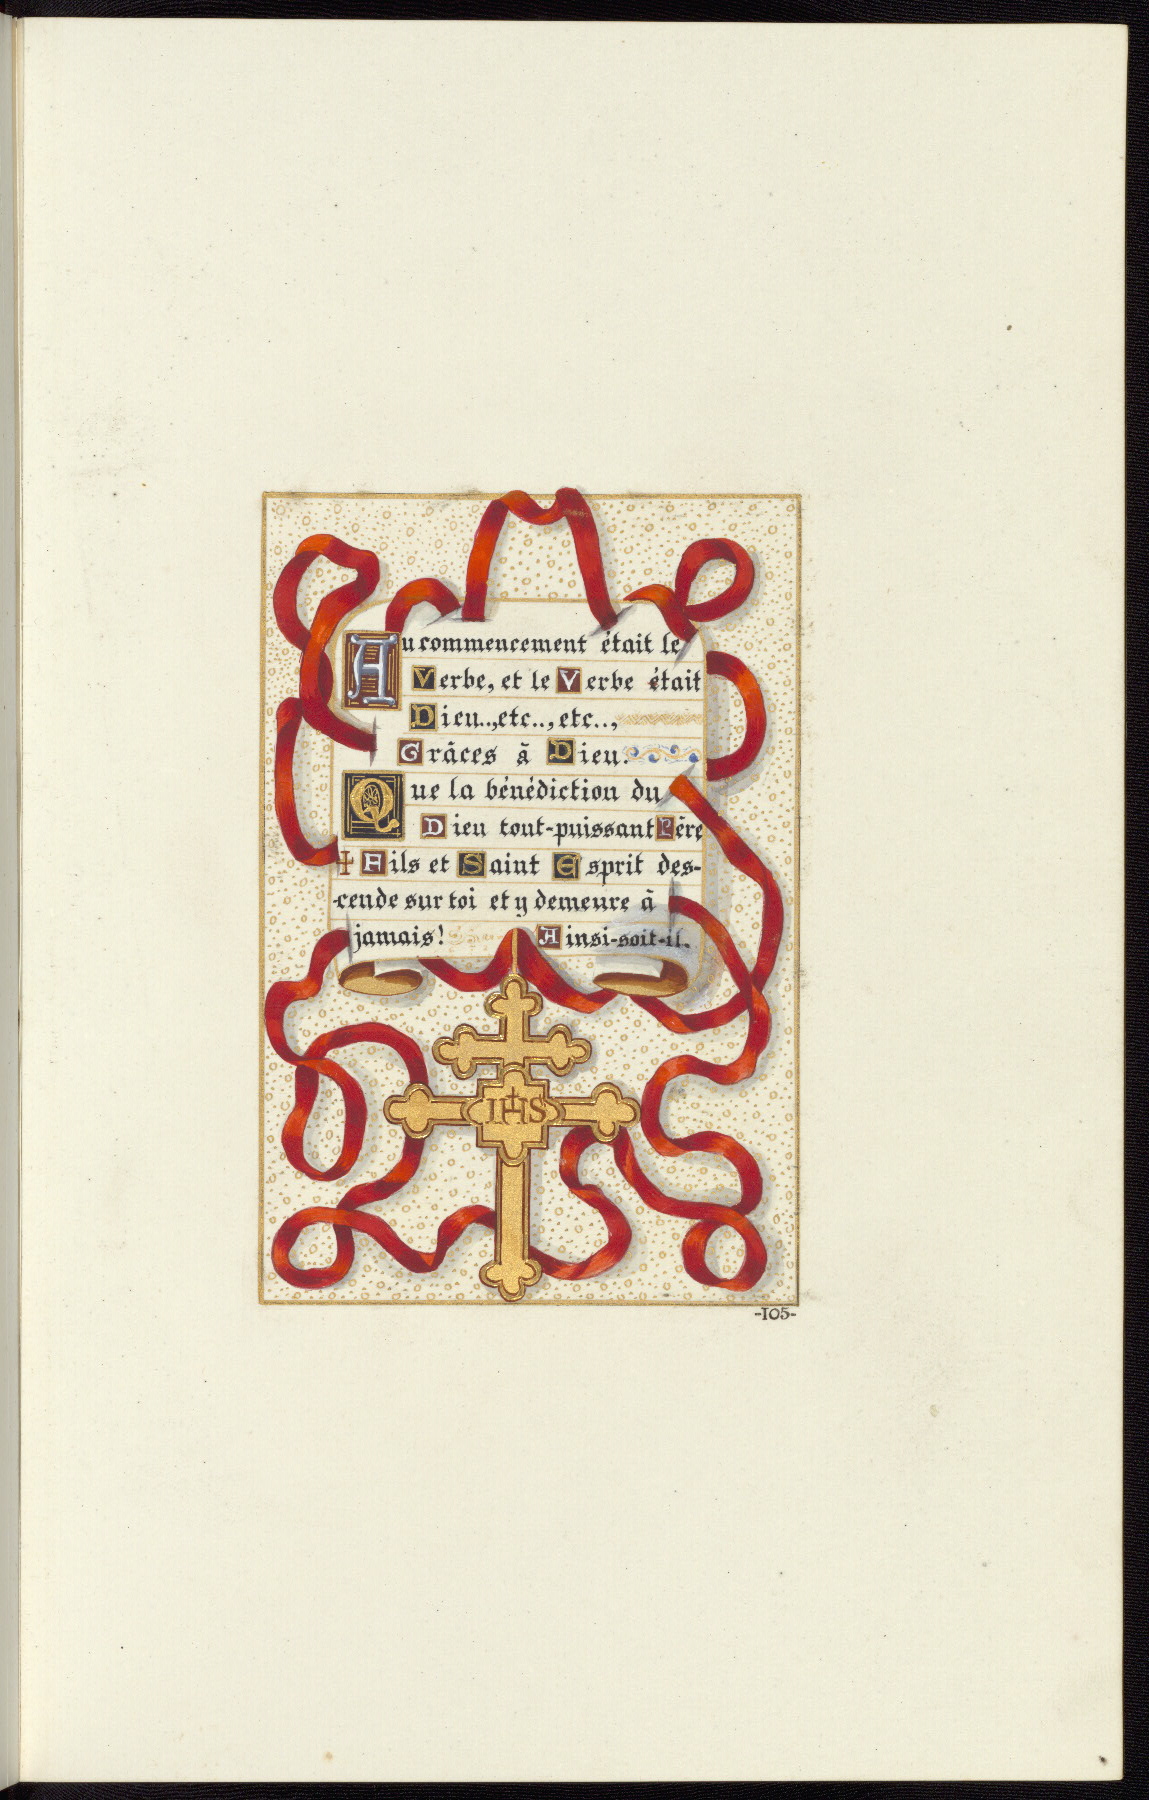 Au commencement était le
Verbe, et le Verbe était
Dieu..,etc..,etc..,
Grâces à Dieu.
Que la bénédiction du
Dieu tout-puissant Père
† Fils et Saint Esprit des-
-cende sur toi et y demeure à
jamais! Ainsi-soit-il.
IHS
-105-